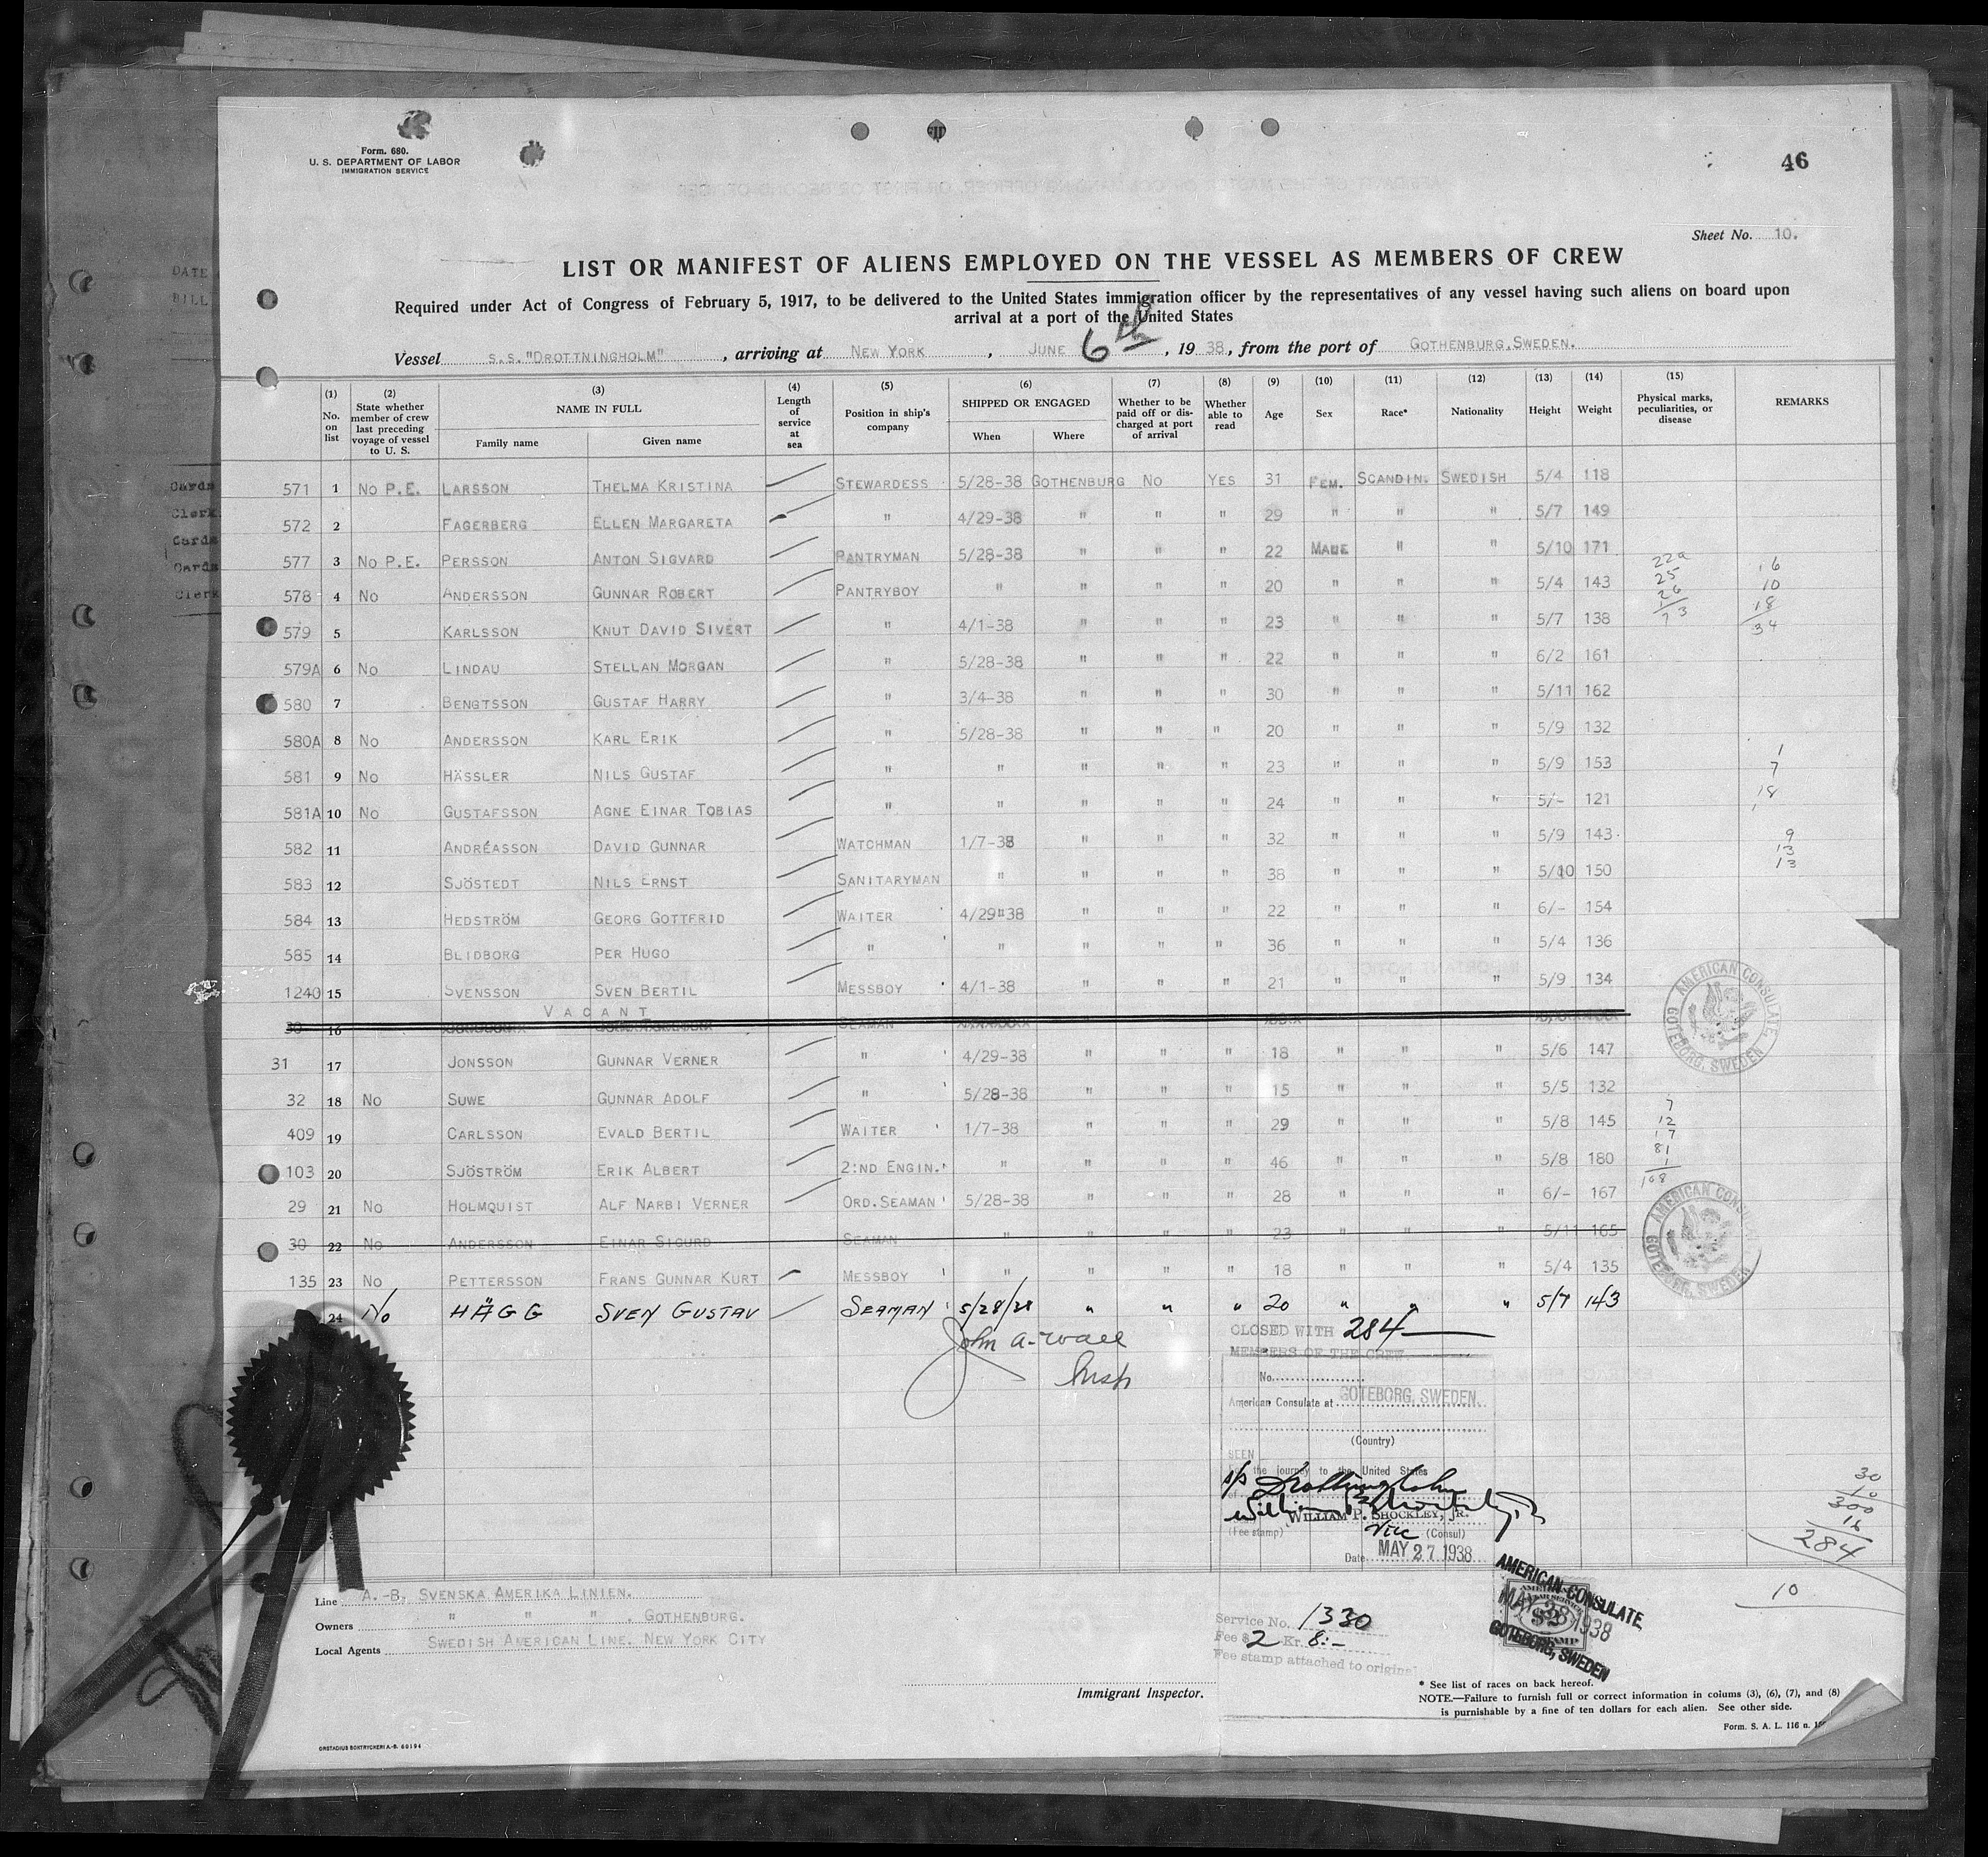 Form. 680.
U. S. DEPARTMENT OF LABOR
IMMIGRATION SERVICE
46
Sheet No. 10.
LIST OR MANIFEST OF ALIENS EMPLOYED ON THE VESSEL AS MEMBERS OF CREW
Required under Act of Congress of February 5, 1917, to be delivered to the United States immigration officer by the representatives of any vessel having such aliens on board upon
arrival at a port of the United States
Vessel S.S."DROTTNINGHOLM", arriving at NEW YORK, JUNE 6th, 1938, from the port of GOTHENBURG, SWEDEN.
(1) No. on list (2) State whether member of crew last preceding voyage of vessel to U. S. (3) NAME IN FULL Family name Given name (4) Length of service at sea (5) Position in ship's company (6) SHIPPED OR ENGAGED When Where (7) Whether to be paid off or discharged at port of arrival (8) Whether able to read (9) Age (10) Sex (11) Race* (12) Nationality (13) Height (14) Weight (15) Physical marks, peculiarities, or disease REMARKS
571 1 No P.E. LARSSON THELMA KRISTINA STEWARDESS 5/28-38 GOTHENBURG No YES 31 FEM. SCANDIN. SWEDISH 5/4 118
572 2 FAGERBERG ELLEN MARGARETA " 4/29-38 " " " 29 " " " 5/7 149
577 3 No P.E. PERSSON ANTON SIGVARD PANTRYMAN 5/28-38 " " " 22 MALE " " 5/10 171
578 4 No ANDERSSON GUNNAR ROBERT PANTRYBOY " " " " 20 " " " 5/4 143
579 5 KARLSSON KNUT DAVID SIVERT " 4/1-38 " " " 23 " " " 5/7 138
579A 6 No LINDAU STELLAN MORGAN " 5/28-38 " " " 22 " " " 6/2 161
580 7 BENGTSSON GUSTAF HARRY " 3/4-38 " " " 30 " " " 5/11 162
580A 8 No ANDERSSON KARL ERIK " 5/28-38 " " " 20 " " " 5/9 132
581 9 No HÄSSLER NILS GUSTAF " " " " " 23 " " " 5/9 153
581A 10 No GUSTAFSSON AGNE EINAR TOBIAS " " " " " 24 " " " 5/- 121
582 11 ANDRÉASSON DAVID GUNNAR WATCHMAN 1/7-38 " " " 32 " " " 5/9 143
583 12 SJÖSTEDT NILS ERNST SANITARYMAN " " " " 38 " " " 5/10 150
584 13 HEDSTRÖM GEORG GOTTFRID WAITER 4/29"38 " " " 22 " " " 6/- 154
585 14 BLIDBORG PER HUGO " " " " " 36 " " " 5/4 136
1240 15 SVENSSON SVEN BERTIL MESSBOY 4/1-38 " " " 21 " " " 5/9 134
VACANT
30 16 SEAMAN
31 17 JONSSON GUNNAR VERNER " 4/29-38 " " " 18 " " " 5/6 147
32 18 No SUWE GUNNAR ADOLF " 5/28-38 " " " 15 " " " 5/5 132
409 19 CARLSSON EVALD BERTIL WAITER 1/7-38 " " " 29 " " " 5/8 145
103 20 SJÖSTRÖM ERIK ALBERT 2:ND ENGIN. " " " " 46 " " " 5/8 180
29 21 No HOLMQUIST ALF NARBI VERNER ORD.SEAMAN 5/28-38 " " " 28 " " " 6/- 167
30 22 No ANDERSSON EINAR SIGURD SEAMAN " " " " 23 " " " 5/11 165
135 23 No PETTERSSON FRANS GUNNAR KURT MESSBOY " " " " 18 " " " 5/4 135
24 No HÄGG SVEN GUSTAV SEAMAN 5/28/38 " " " 20 " " " 5/7 143
22a
25
26
73
6
10
18
34
1
7
18
9
13
13
7
12
17
81
1
108
AMERICAN CONSULATE
GOTEBORG, SWEDEN
AMERICAN CONSULATE
GOTEBORG, SWEDEN
John A. Wall
Insp
CLOSED WITH 284
MEMBERS OF THE CREW
No.
American Consulate at GOTEBORG, SWEDEN.
(Country)
SEEN
the journey to the United States
of s/s Drottningholm
WILLIAM P. SHOCKLEY, JR.
(Fee stamp) Vice (Consul)
Date MAY 27 1938
30
10
300
16
284
10
Line A.-B. SVENSKA AMERIKA LINIEN.
Owners " " " , GOTHENBURG.
Local Agents SWEDISH AMERICAN LINE. NEW YORK CITY
Service No. 1330
Fee $ 2 Kr. 8:-
Fee stamp attached to original
AMERICAN CONSULATE
MAY 28 1938
GOTEBORG, SWEDEN
$2
Immigrant Inspector.
* See list of races on back hereof.
NOTE.—Failure to furnish full or correct information in colums (3), (6), (7), and (8)
is purnishable by a fine of ten dollars for each alien. See other side.
Form. S. A. L. 116 n.
ORSTADIUS BOKTRYCKERI A.-B. 60194
DATE
BILL
Cards
Clerk
Cards
Cards
Clerk